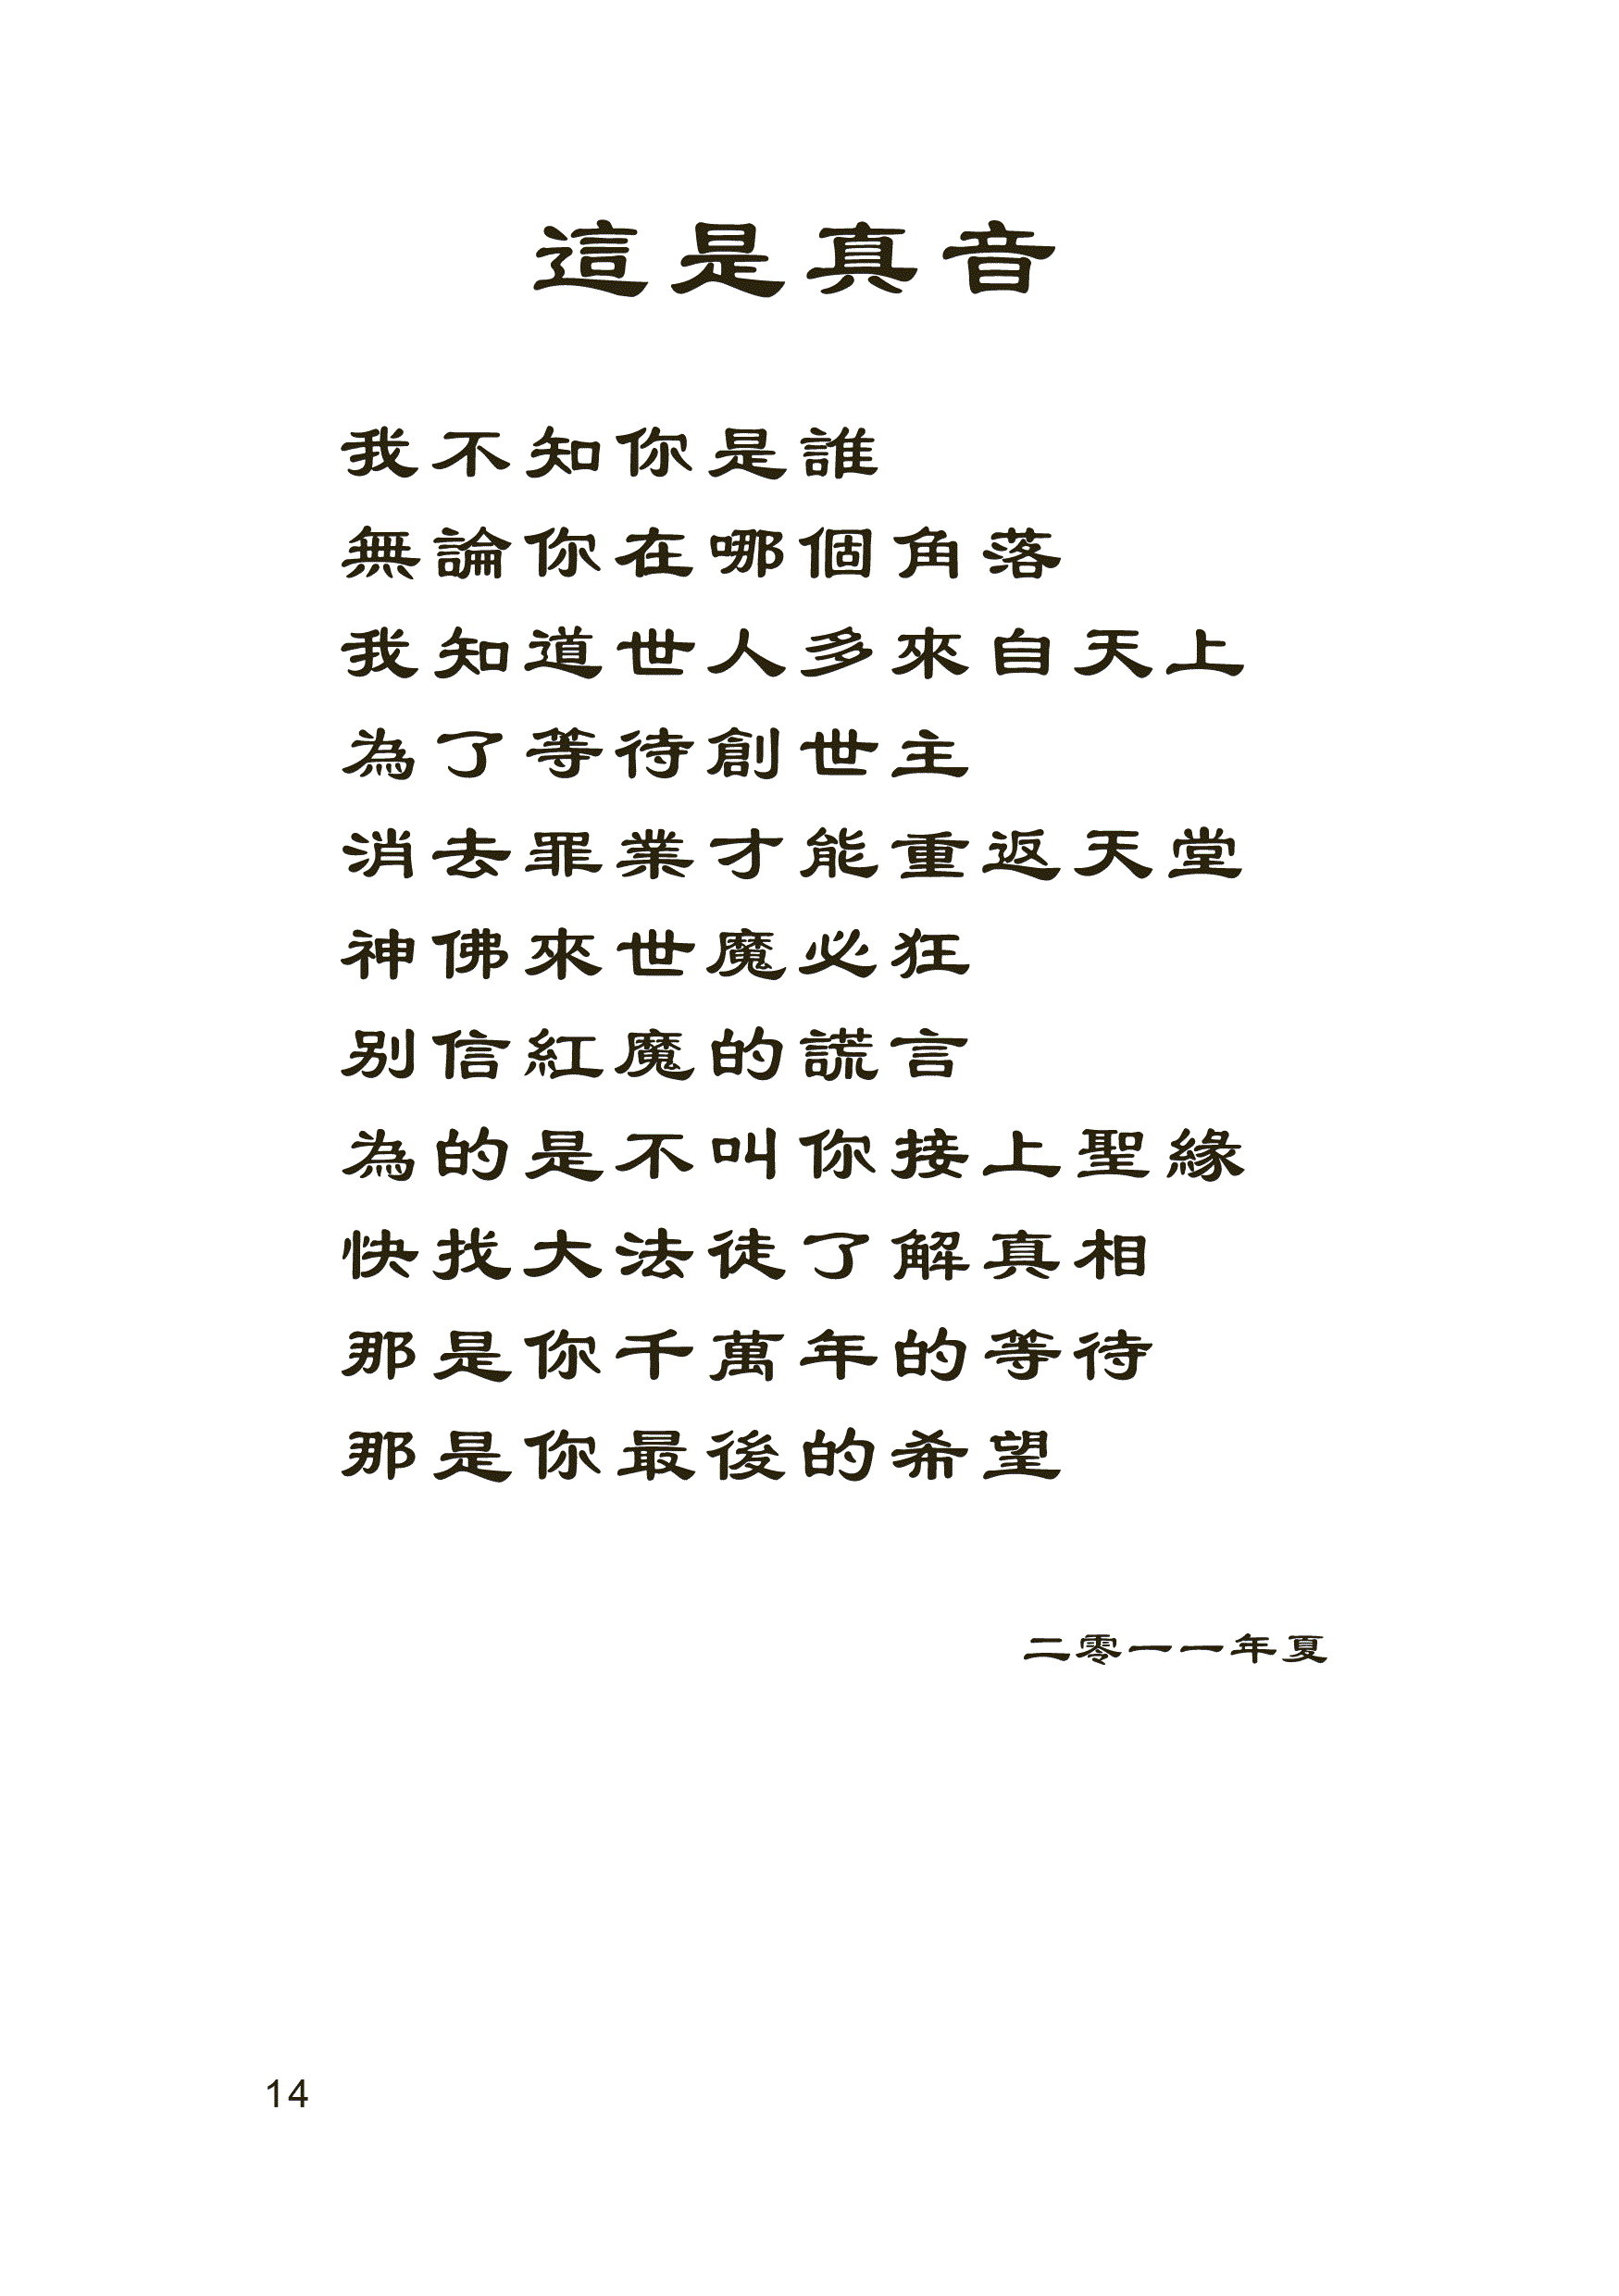 這是真音
我不知你是誰
無論你在哪個角落
我知道世人多來自天上
為了等待創世主
消去罪業才能重返天堂
神佛來世魔必狂
别信紅魔的謊言
為的是不叫你接上聖緣
快找大法徒了解真相
那是你千萬年的等待
那是你最後的希望
二零一一年夏
14